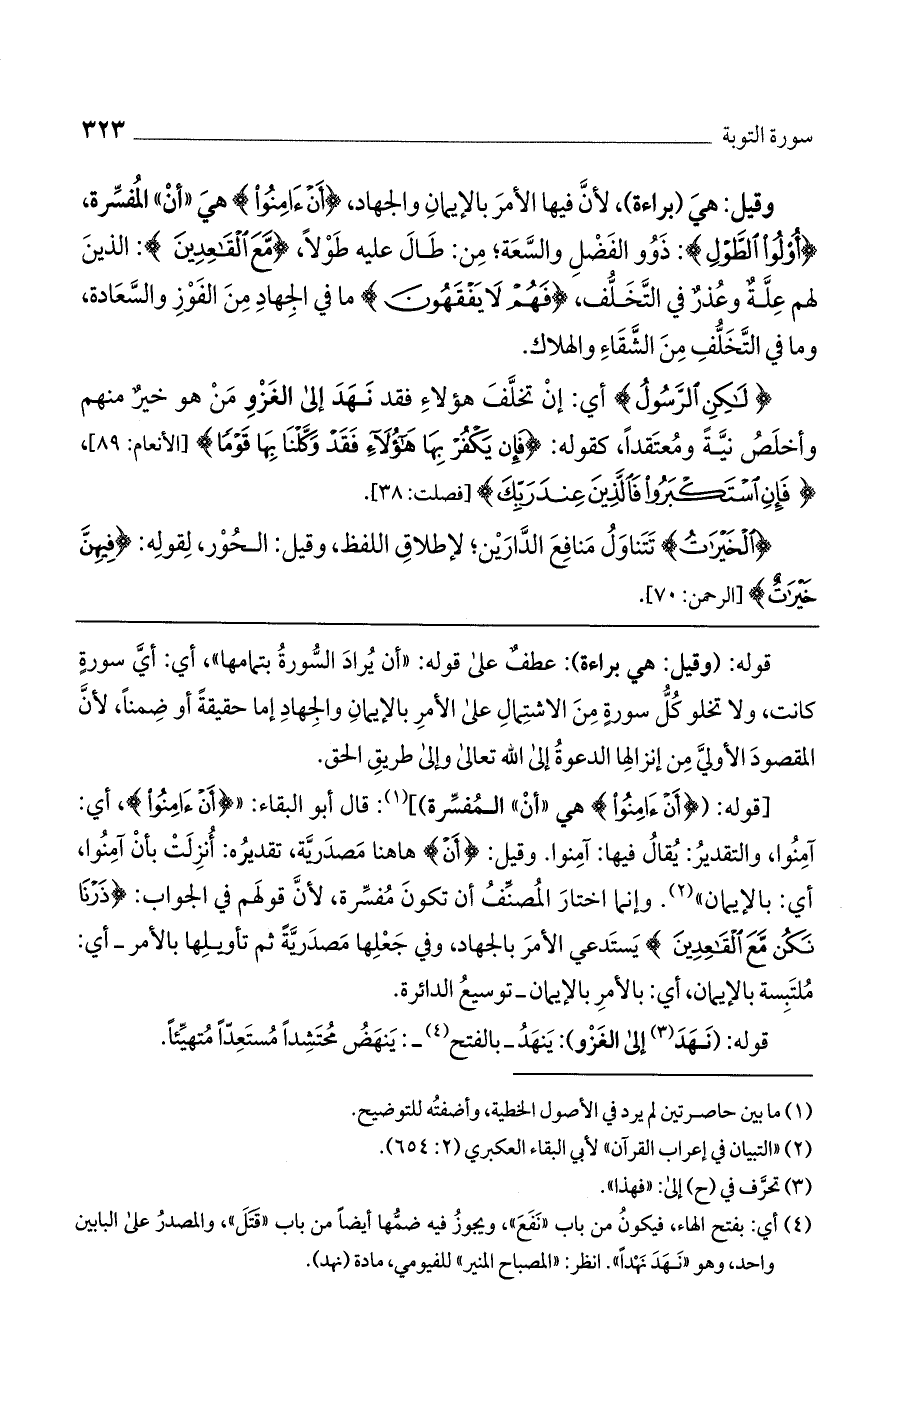 سورة التوبة ٣٢٣
وقيل: هيَ (براءة)، لأنَّ فيها الأمرَ بالإيمانِ والجهاد، ﴿أَنْ ءَامِنُوا۟﴾ هيَ «أنْ» المُفسِّرة،
﴿أُو۟لُوا۟ ٱلطَّوْلِ﴾: ذَوُو الفَضْلِ والسَّعَة؛ مِن: طَالَ عليه طَوْلاً، ﴿مَّعَ ٱلْقَـٰعِدِينَ﴾: الذينَ
لهم عِلَّةٌ وعُذرٌ في التَّخَلُّف، ﴿فَهُمْ لَا يَفْقَهُونَ﴾ ما في الجِهادِ مِنَ الفَوْزِ والسَّعَادة،
وما في التَّخَلُّفِ مِنَ الشَّقَاءِ والهلاك.
﴿لَـٰكِنِ ٱلرَّسُولُ﴾ أي: إنْ تخلَّفَ هؤلاءِ فقد نَهَدَ إلىٰ الغَزْوِ مَنْ هو خيرٌ منهم
وأخلَصُ نيَّةً ومُعتقداً، كقوله: ﴿فَإِن يَكْفُرْ بِهَا هَـٰٓؤُلَآءِ فَقَدْ وَكَّلْنَا بِهَا قَوْمًا﴾ [الأنعام: ٨٩]،
﴿فَإِنِ ٱسْتَكْبَرُوا۟ فَٱلَّذِينَ عِندَ رَبِّكَ﴾ [فصلت: ٣٨].
﴿ٱلْخَيْرَٰتُ﴾ تَتَناوَلُ مَنافِعَ الدَّارَيْن؛ لإطلاقِ اللفظ، وقيل: الحُوْر، لِقولِه: ﴿فِيهِنَّ
خَيْرَٰتٌ﴾ [الرحمن: ٧٠].
قوله: (وقيل: هي براءة): عطفٌ علىٰ قوله: «أن يُرادَ السُّورةُ بتمامها»، أي: أيَّ سورةٍ
كانت، ولا تخلو كُلُّ سورةٍ مِنَ الاشتِمالِ علىٰ الأمرِ بالإيمانِ والجِهادِ إما حقيقةً أو ضِمناً، لأنَّ
المقصودَ الأوليَّ مِن إنزالِها الدعوةُ إلىٰ الله تعالىٰ وإلىٰ طريقِ الحق.
[قوله: (﴿أَنْ ءَامِنُوا۟﴾ هي «أنْ» المُفسِّرة)](١): قال أبو البقاء: «﴿أَنْ ءَامِنُوا۟﴾، أي:
آمِنُوا، والتقديرُ: يُقالُ فيها: آمِنوا. وقيل: ﴿أَنْ﴾ هاهنا مَصدَريَّة، تقديرُه: أُنزِلَتْ بأنْ آمِنُوا،
أي: بالإيمان»(٢). وإنما اختارَ المُصنِّفُ أن تكونَ مُفسِّرة، لأنَّ قولَهم في الجواب: ﴿ذَرْنَا
نَكُن مَّعَ ٱلْقَـٰعِدِينَ﴾ يَستدعي الأمرَ بالجهاد، وفي جَعْلِها مَصدَريَّةً ثم تأويلِها بالأمر - أي:
مُلتَبِسة بالإيمان، أي: بالأمرِ بالإيمان - توسيعُ الدائرة.
قوله: (نَهَدَ(٣) إلىٰ الغَزْو): يَنهَدُ - بالفتح(٤) - : يَنهَضُ مُحتَشِداً مُستَعِدّاً مُتهيِّئاً.
(١) ما بين حاصرتين لم يرد في الأصول الخطية، وأضفتُه للتوضيح.
(٢) «التبيان في إعراب القرآن» لأبي البقاء العكبري (٢: ٦٥٤).
(٣) تحرَّف في (ح) إلىٰ: «فهذا».
(٤) أي: بفتح الهاء، فيكونُ من باب «نَفَعَ»، ويجوزُ فيه ضمُّها أيضاً من باب «قَتَلَ»، والمصدرُ علىٰ البابين
واحد، وهو «نَهَدَ نَهْداً». انظر: «المصباح المنير» للفيومي، مادة (نهد).